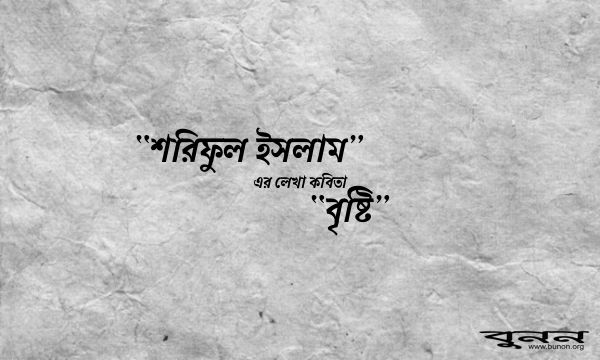 “শরিফুল ইসলাম”
এর লেখা কবিতা
“বৃষ্টি”
বুনন
www.bunon.org